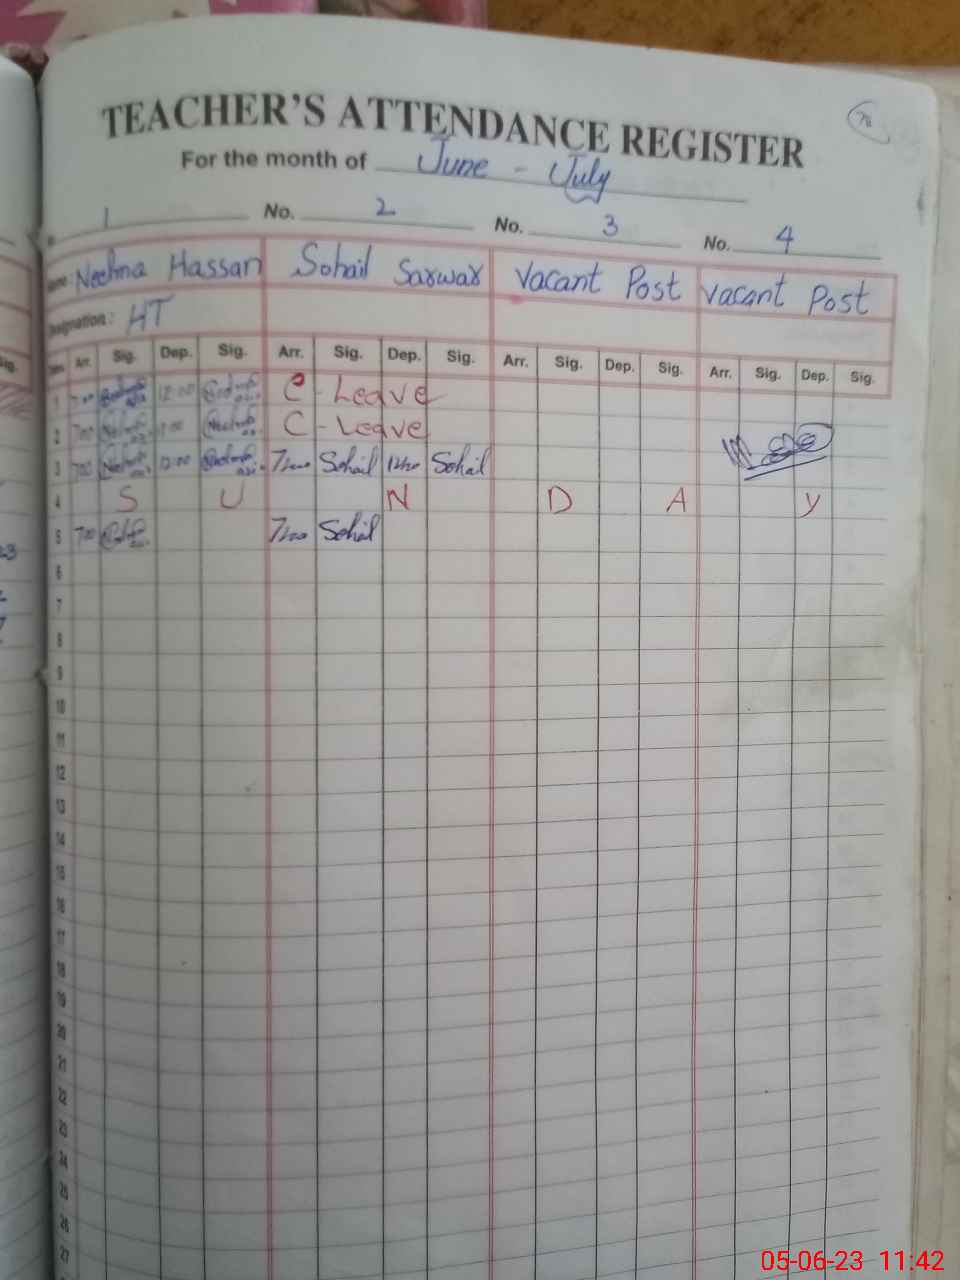 TEACHER'S ATTENDANCE REGISTER
For the month of June - July
1 No. 2 No. 3 No. 4
Neelma Hassan Sohail Sarwar Vacant Post Vacant Post
Designation: HT
Arr. Sig. Dep. Sig. Arr. Sig. Dep. Sig. Arr. Sig. Dep. Sig. Arr. Sig. Dep. Sig.
1 7:00 12:00 C - Leave
2 7:00 C - Leave
3 7:00 12:00 7:00 Sohail 12:00 Sohail
4 S U N D A Y
5 7:00 7:00 Sohail
6
7
8
9
10
11
12
13
14
15
16
17
18
19
20
21
22
23
24
25
26
27
05-06-23 11:42